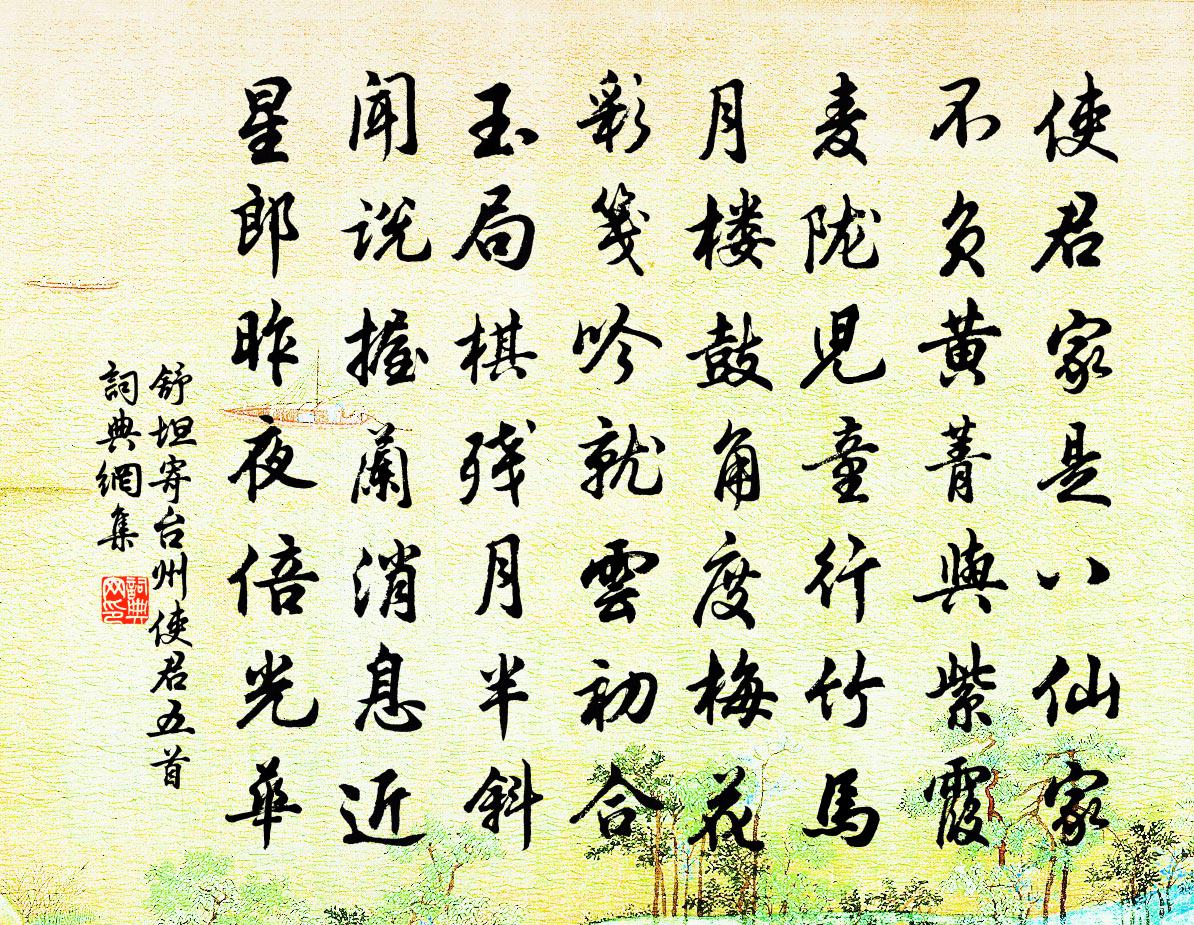 使君家是八仙家
不负黄菁與紫霞
麦陇児童行竹馬
月楼鼓角度梅花
彩笺吟就雲初合
玉局棋残月半斜
闻说握蘭消息近
星郎昨夜倍光華
舒坦寄台州使君五首
詞典網集
詞典网印